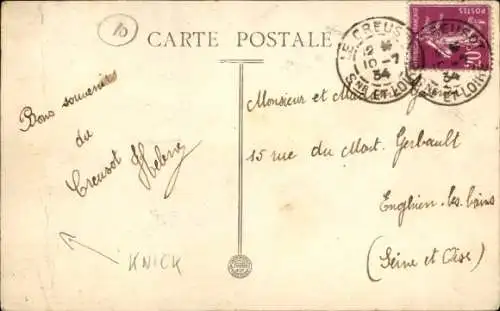 10
CARTE POSTALE
LE CREUSOT
12 *
10-7
34
SNE ET LOIRE
POSTES
20c
LE CREUSOT
34
SNE ET LOIRE
Bons souvenirs
du
Creusot Helene
KNICK
Monsieur et
15 rue du Mart. Gerbault
Enghien-les-bains
(Seine et Oise)